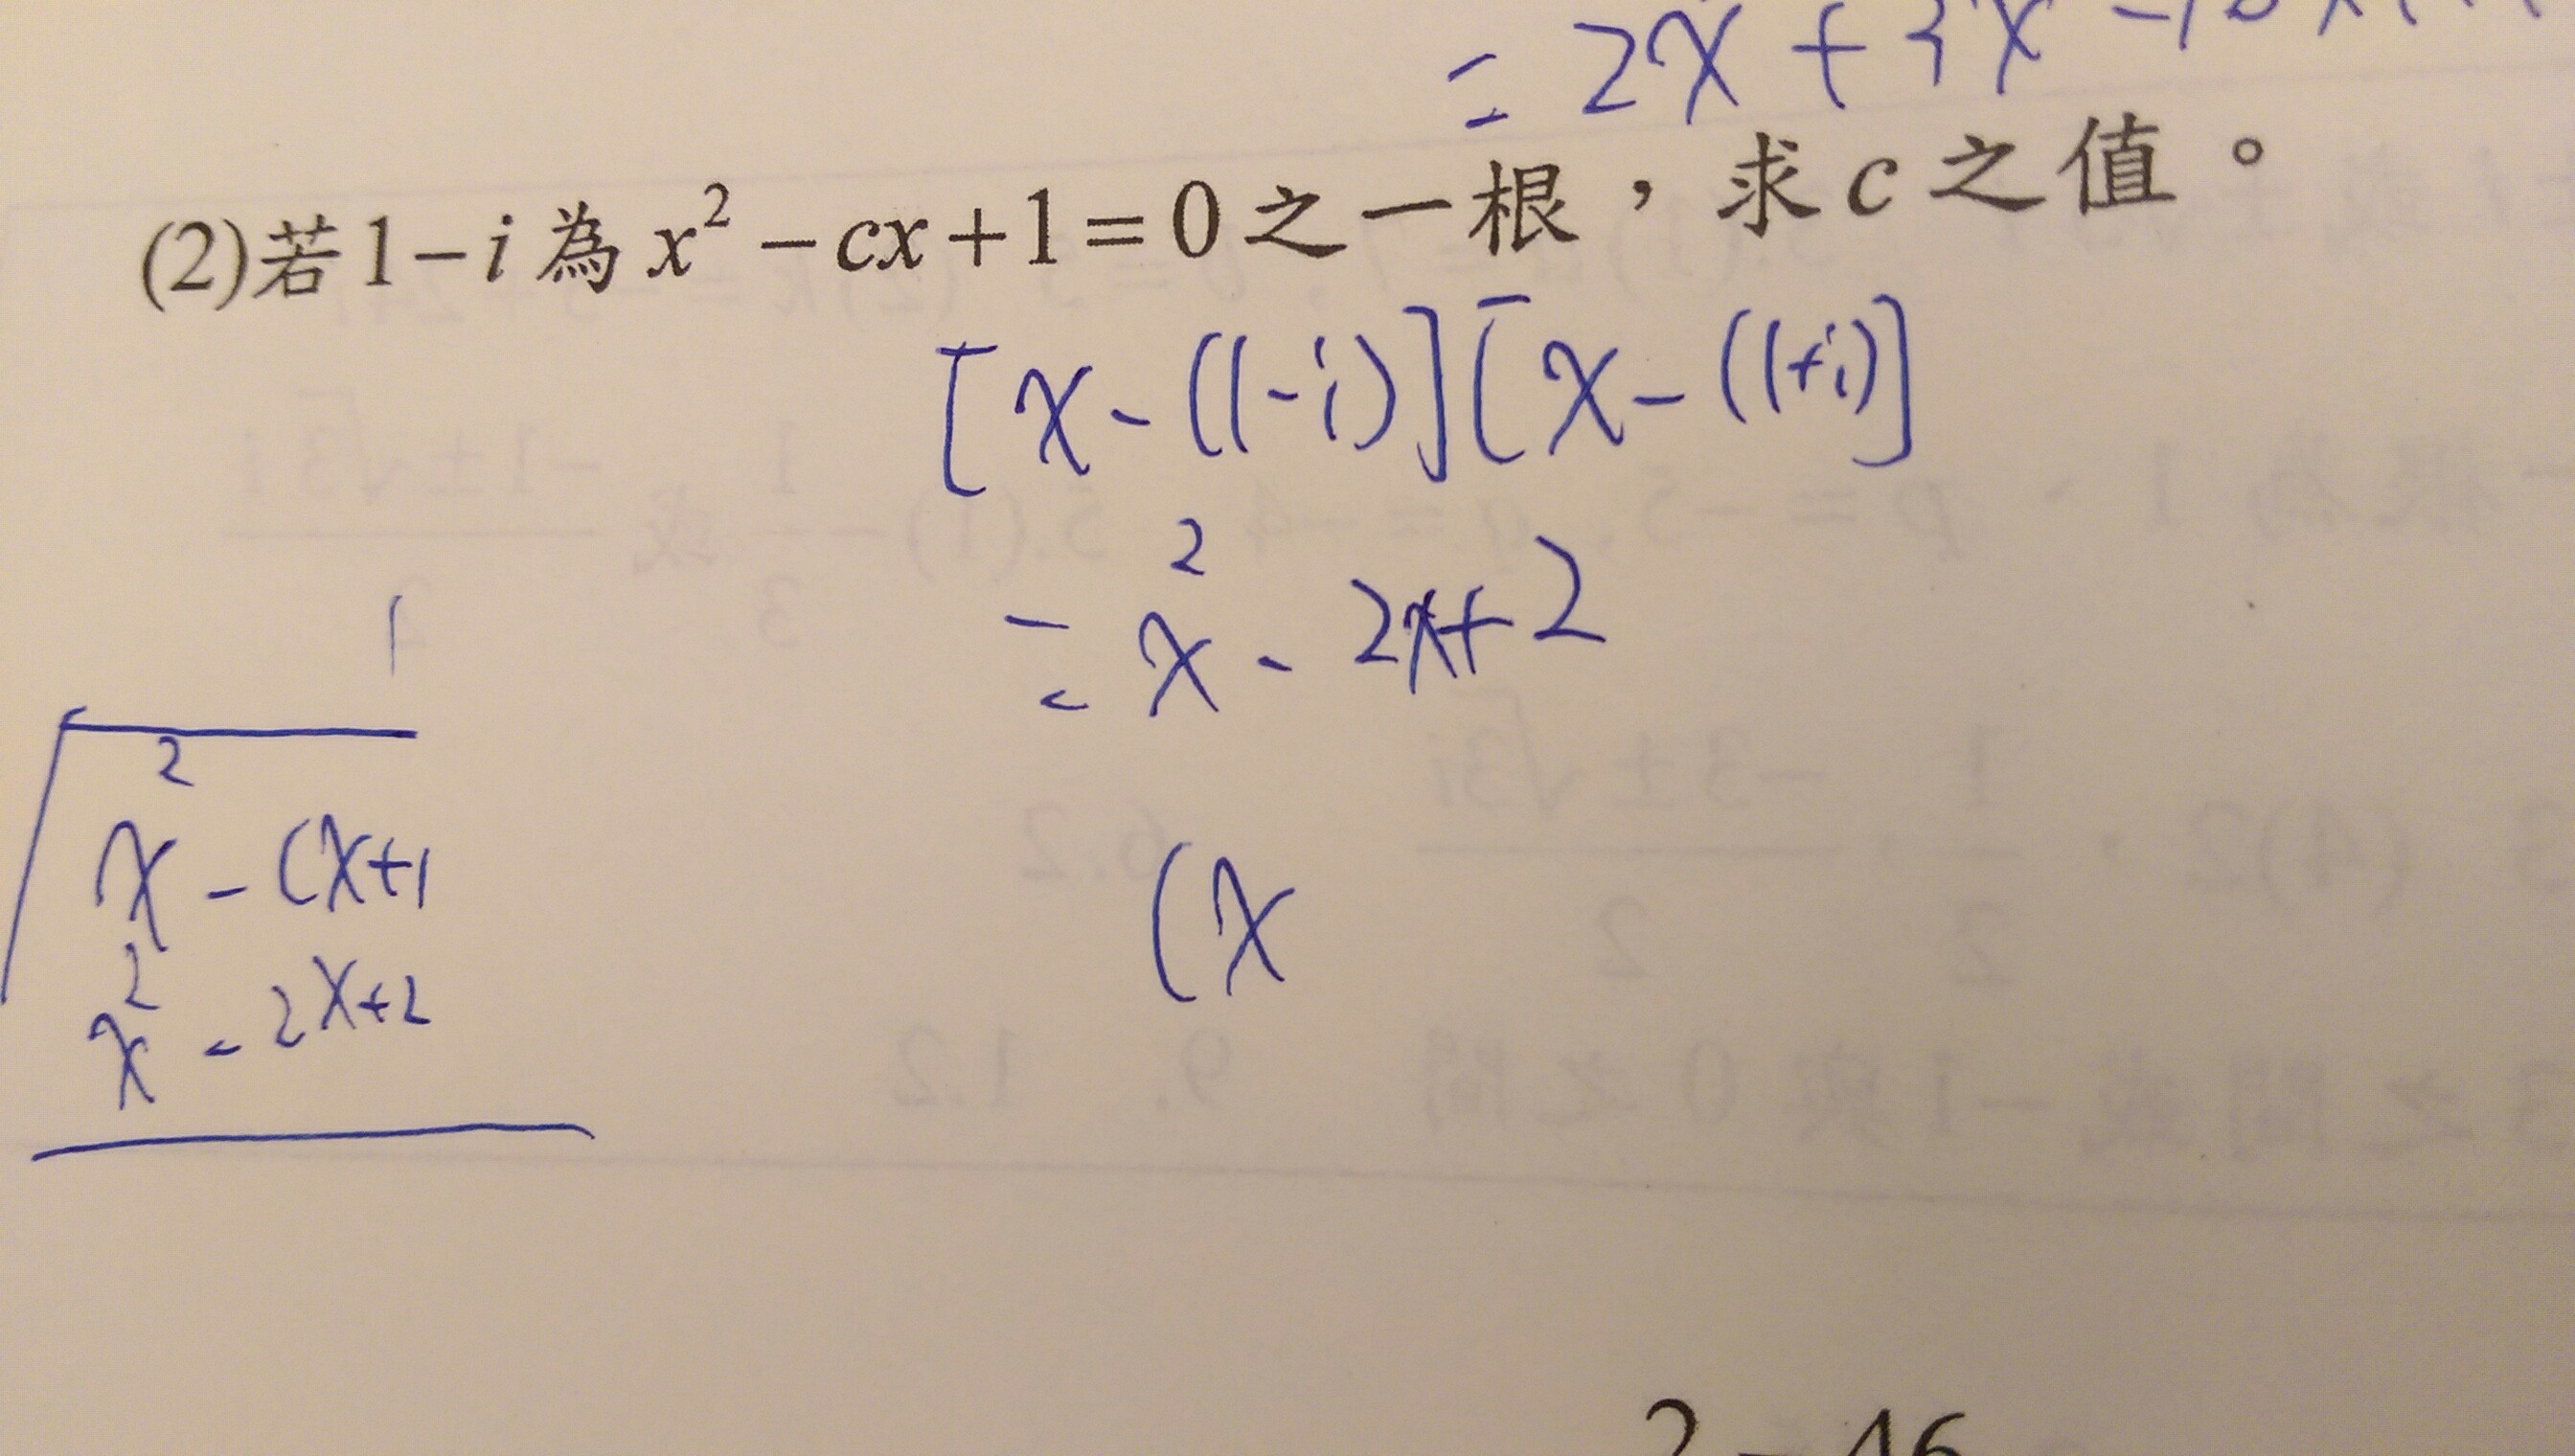 = 2x + 3x
(2)若1-i為x²-cx+1=0之一根，求c之值。
[x-(1-i)][x-(1+i)]
= x²-2x+2
1
x²-cx+1
x²-2x+2
(x
2-46